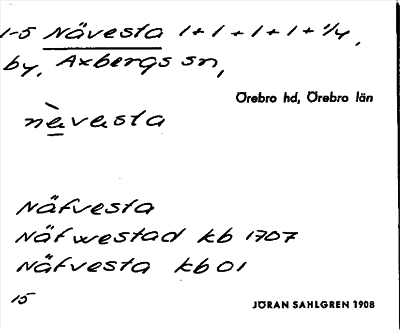 1-5 Nävesta 1+1+1+1+1/4,
by, Axbergs sn,
Örebro hd, Örebro län
nὲvesta
Näfvesta
Näfwestad kb 1707
Näfvesta kb 01
15
JÖRAN SAHLGREN 1908